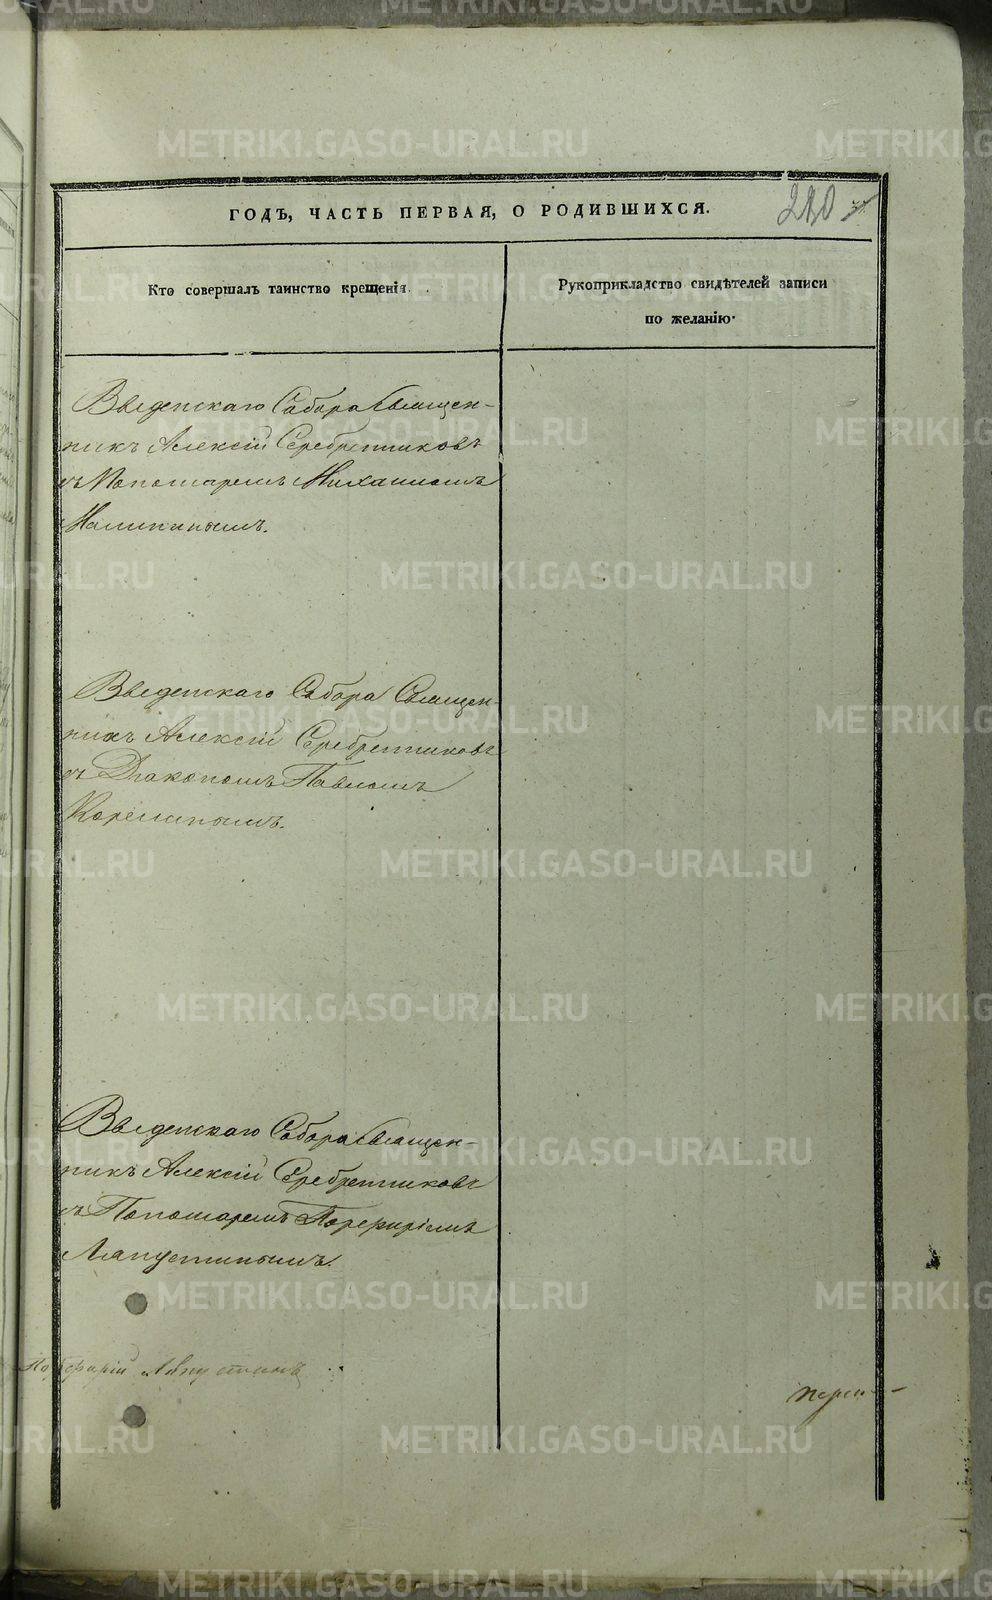 ГОДЪ, ЧАСТЬ ПЕРВАЯ, О РОДИВШИХСЯ.
280
Кто совершалъ таинство крещенія.
Рукоприкладство свидѣтелей записи
по желанію.
Введенскаго Собора Священ-
никъ Алексій Серебренниковъ
съ Пономаремъ Михаиломъ
Малининымъ.
Введенскаго Собора Священ-
никъ Алексій Серебренниковъ
съ Діакономъ Павломъ
Корелинымъ.
Введенскаго Собора Священ-
никъ Алексій Серебренниковъ
съ Пономаремъ Порфиріемъ
Ляпустинымъ.
Порфирій Ляпустинъ
METRIKI.GASO-URAL.RU